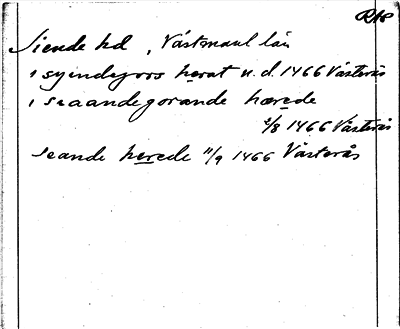 RAp
Siende hd , Västmanl län
i syendegors herat u. d. 1466 Västerås
i seaandegorande hærede
2/8 1466 Västerås
seande herede 11/9 1466 Västerås